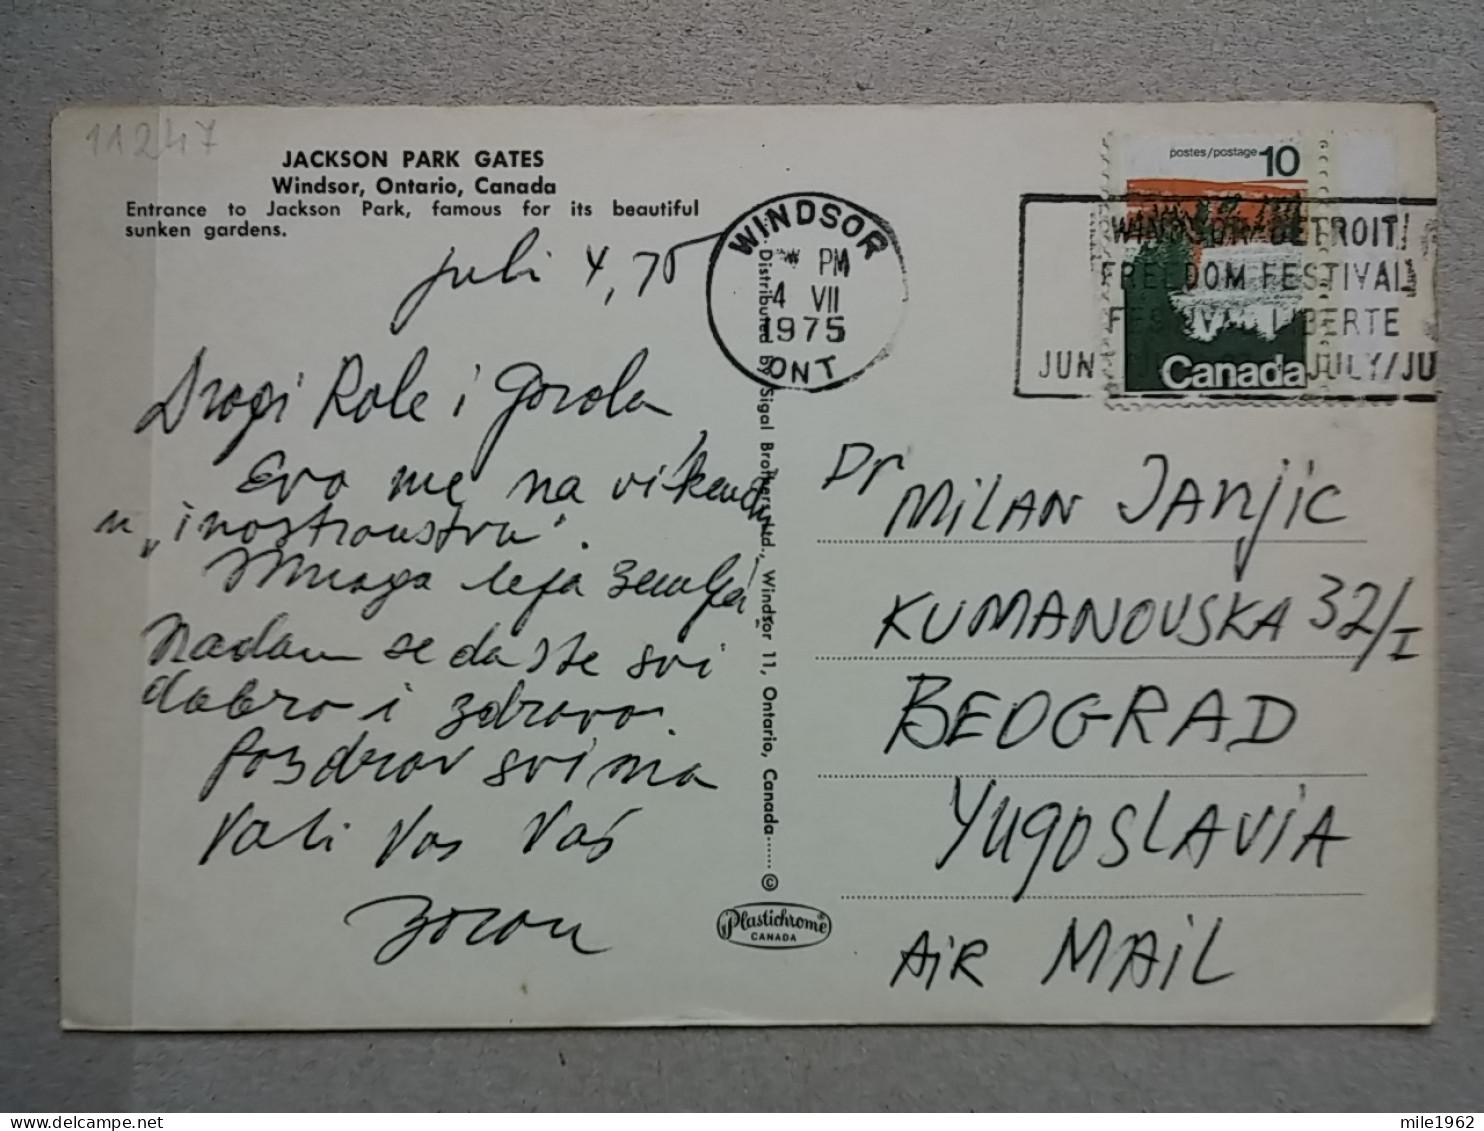 11247
JACKSON PARK GATES
Windsor, Ontario, Canada
Entrance to Jackson Park, famous for its beautiful
sunken gardens.
juli 4, 75
Dragi Role i Gorola,
Evo me na vikendu
u "inostranstvu".
Mnogo lepa zemlja.
Nadam se da ste svi
dobro i zdravo.
Pozdrav svima
Voli Vas Vaš
Zoran
WINDSOR
PM
4 VII
1975
ONT
Distributed by Sigal Brothers Ltd., Windsor 11, Ontario, Canada......©
Plastichrome®
CANADA
postes/postage 10
Canada
WINDSOR-DETROIT/
FREEDOM FESTIVAL
FESTIVAL LIBERTE
JUN JULY/JU
Dr MiLAN JANJiC
KUMANOVSKA 32/I
BEOGRAD
YUGOSLAViA
AiR MAiL
mile1962